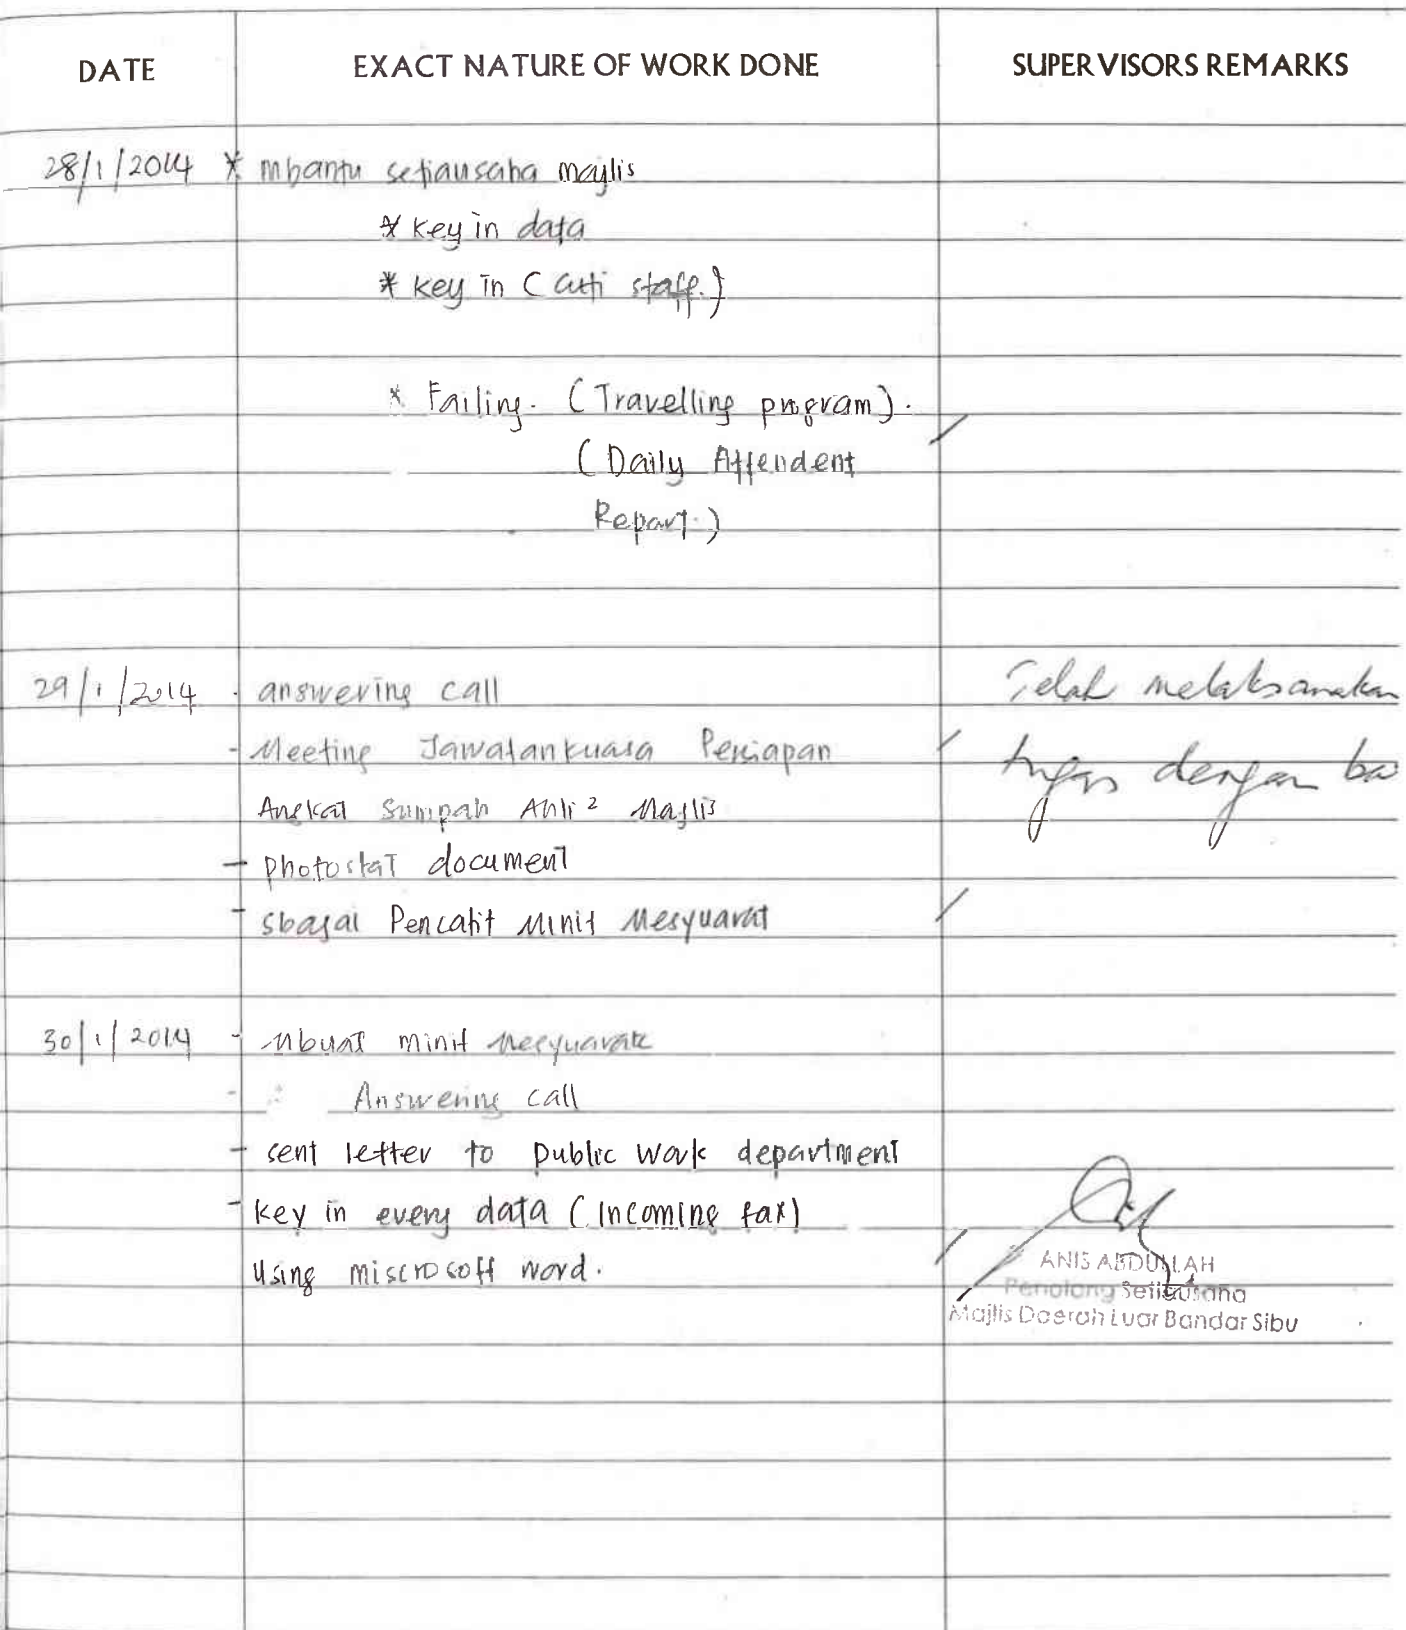 DATE EXACT NATURE OF WORK DONE SUPERVISORS REMARKS
28/1/2014 * mbantu setiausaha majlis
* key in data
* key in (cuti staff.)
* Failing. (Travelling program).
(Daily Attendent
Report.)
29/1/2014 - answering call Telah melaksanakan
- Meeting Jawatankuasa Persiapan tugas dengan ba
Angkat Sumpah Ahli² Majlis
- photostat document
- sbagai Pencatit Minit Mesyuarat
30/1/2014 - Mbuat minit Mesyuarat
- Answering call
- sent letter to public work department
- key in every data (Incoming fax)
Using miscrosoft word. ANIS ABDULLAH
Penolong Setiausaha
Majlis Daerah Luar Bandar Sibu